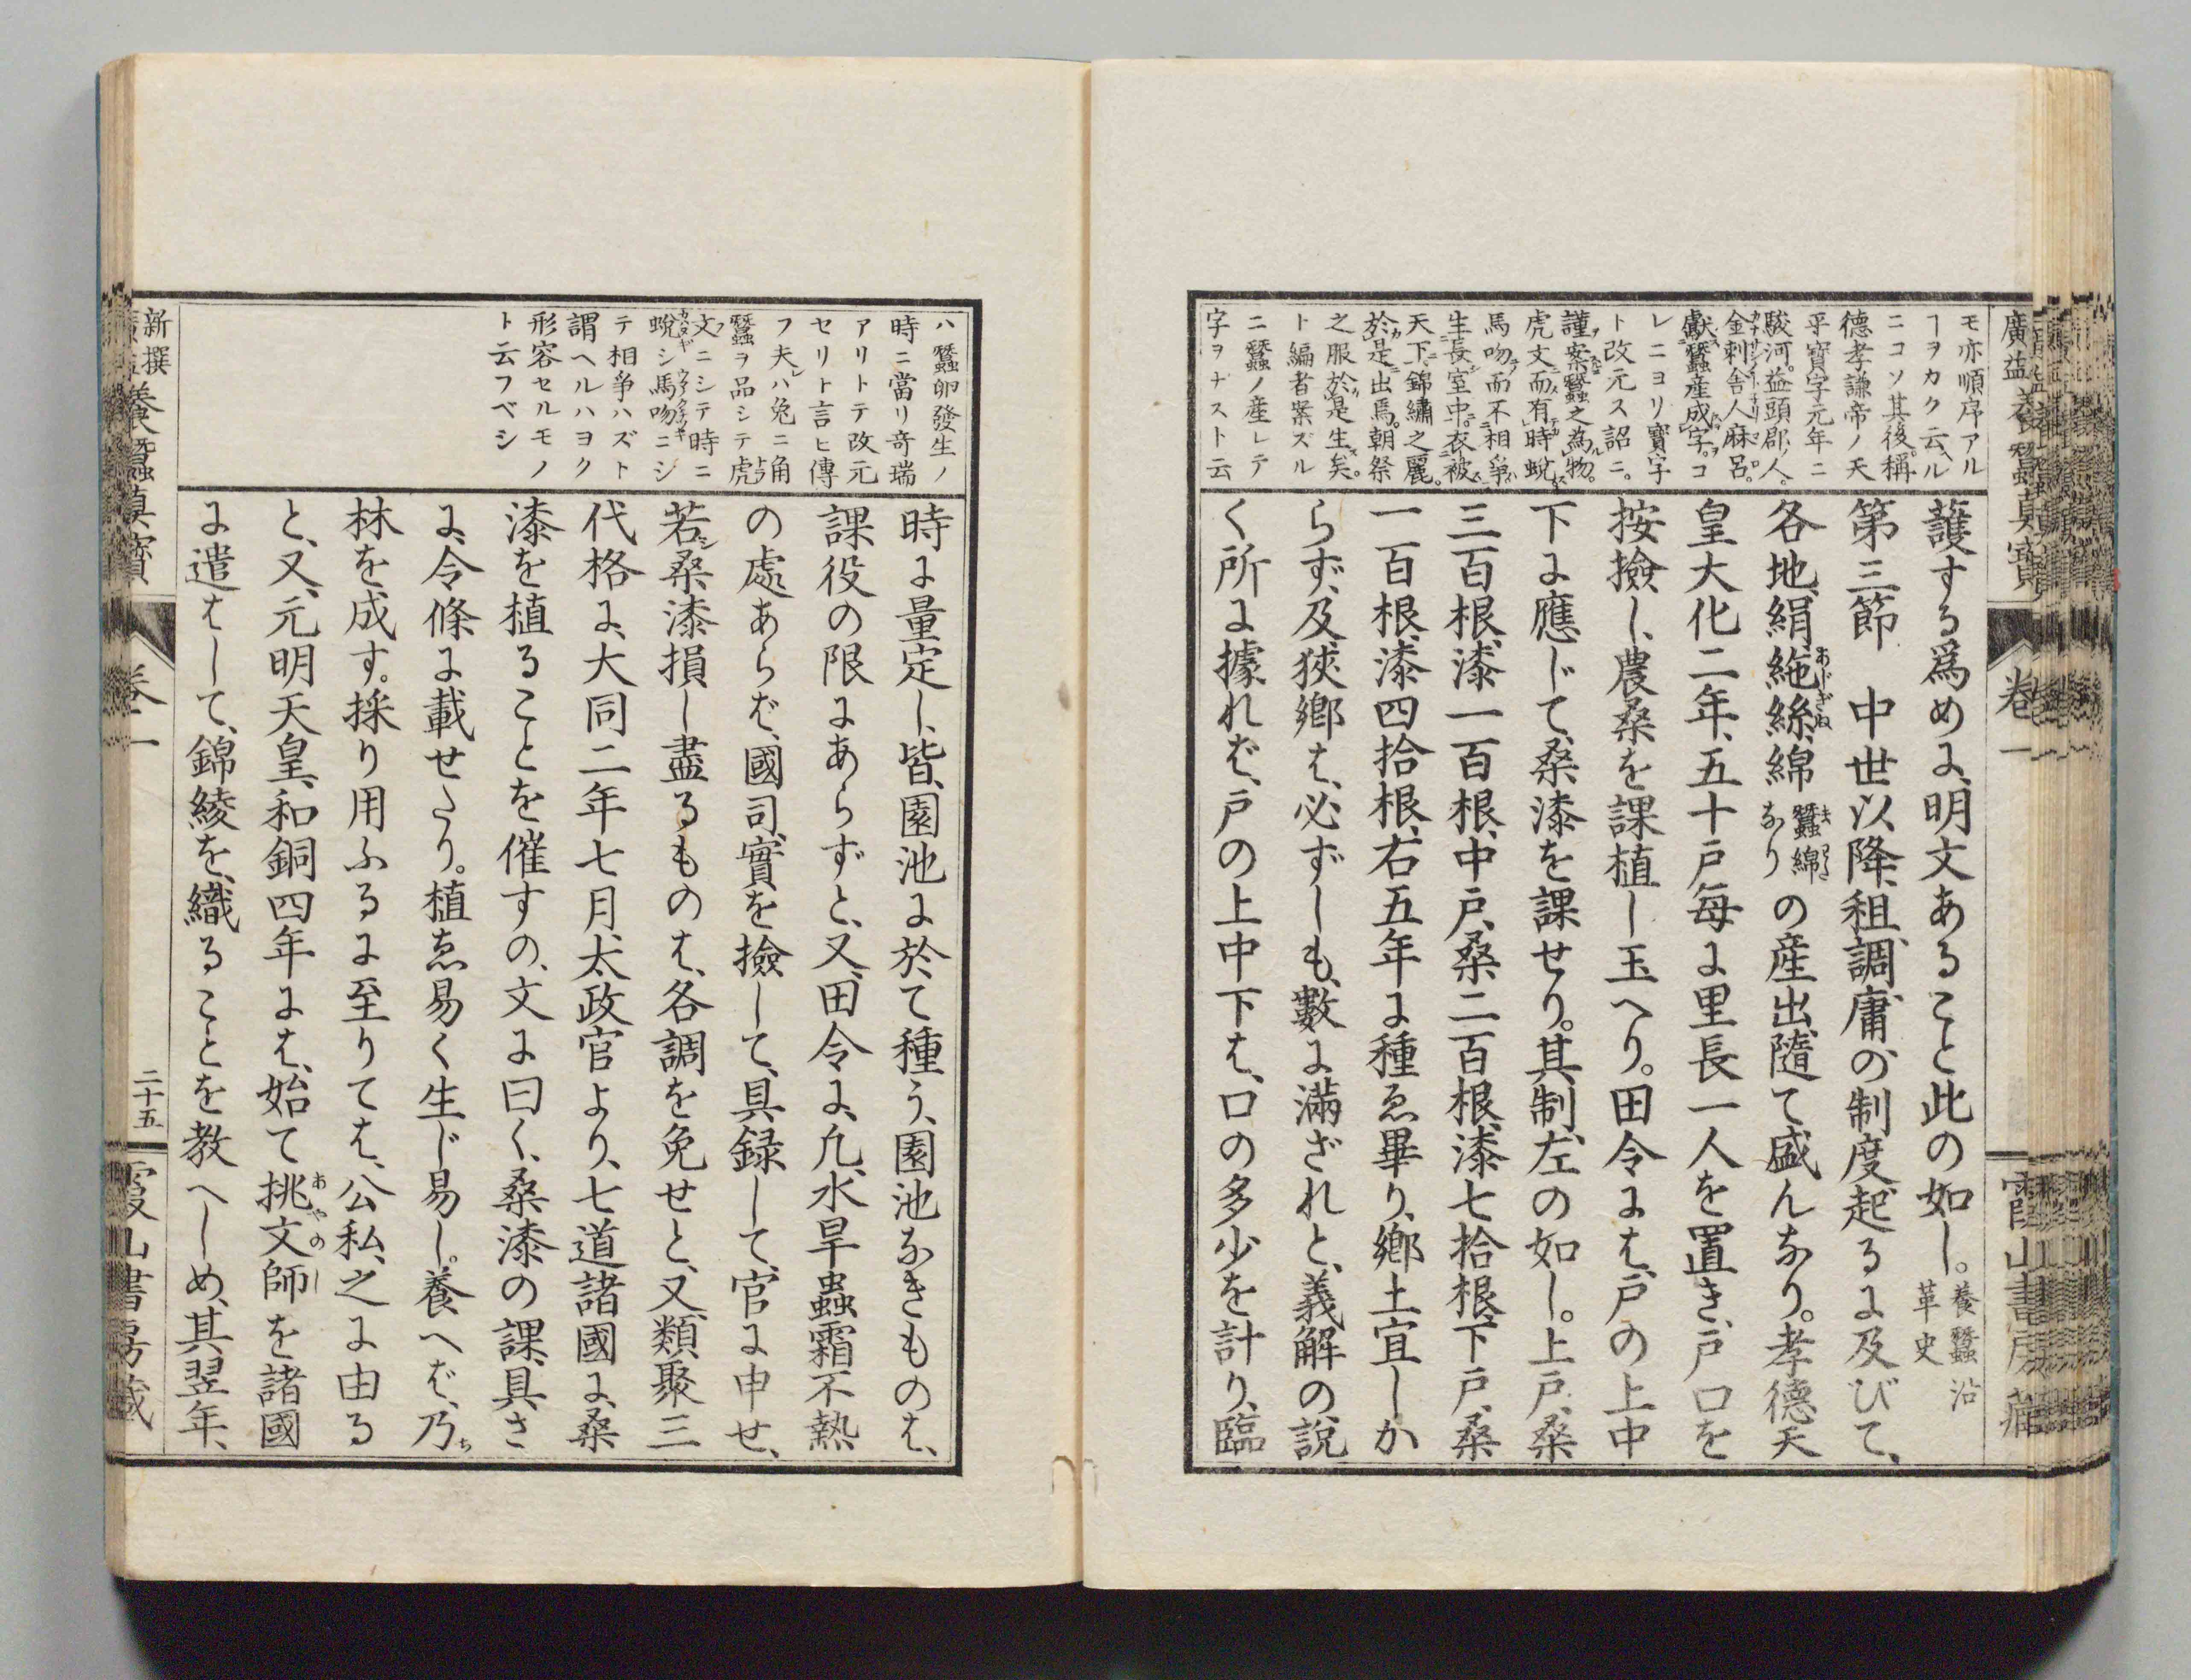 廣益養蠶真寶　卷一　霞山書房藏
モ亦順序アル
ヿヲカク云ヘル
ニコソ其後。稱
德孝謙帝ノ天
平寶字元年ニ
駿河。益頭郡ノ人。
金刺舎人麻呂。
獻蠶産成字。コ
レニヨリ寶字
ト改元ス詔ニ。
謹案蠶之為物。
虎文而有時蛻
馬吻而不相爭
生長室中。衣被
天下。錦繡之麗。
於是出焉。朝祭
之服於是生矣。
ト編者案ズル
ニ蠶ノ産レテ
字ヲナスト云
護する爲めに、明文あること此の如し。養蠶沿革史
第三節　中世以降、租、調、庸、の制度起るに及びて、
各地、絹、絁あしぎぬ、絲、綿蠶綿きわたなりの産出、隨て盛んなり。孝德天
皇大化二年、五十戸毎に里長一人を置き、戸口を
按撿し、農桑を課植し玉へり。田令には、戸の上中
下に應じて、桑漆を課せり。其制、左の如し。上戸、桑
三百根、漆一百根、中戸、桑二百根、漆七拾根、下戸、桑
一百根、漆四拾根、右五年に種ゑ畢り、鄕土宜しか
らず、及、狹鄕は、必ずしも、數に滿ざれと、義解の說
く所に據れば、戸の上中下は、口の多少を計り、臨
ハ蠶卵發生ノ
時ニ當リ奇瑞
アリトテ改元
セリト言ヒ傳
フ夫レハ兔ニ角
蠶ヲ品シテ虎トラ
文フニシテ時ニ
蛻カヘヌギシ馬吻ウマクチツキニシ
テ相爭ハズト
謂ヘルハヨク
形容セルモノ
ト云フベシ
時に量定し、皆、園池に於て種う、園池なきものは、
課役の限にあらずと、又、田令に、凡、水旱蟲霜不熟
の處あらば、國司、實を撿して、具録して、官に申せ、
若シ桑漆損し盡るものは、各調を免せと、又、類聚三
代格に、大同二年七月、太政官より、七道諸國に、桑
漆を植ることを催すの、文に曰く、桑漆の課、具さ
に、令條に載せたり。植ゑ易く生じ易し。養へば、乃ち
林を成す。採り用ふるに至りては、公私、之に由る
と、又、元明天皇、和銅四年には、始て挑文師あやのしを諸國
に遣はして、錦綾を、織ることを教へしめ、其翌年、
新撰廣益養蠶真寶　卷一　二十五　霞山書房藏